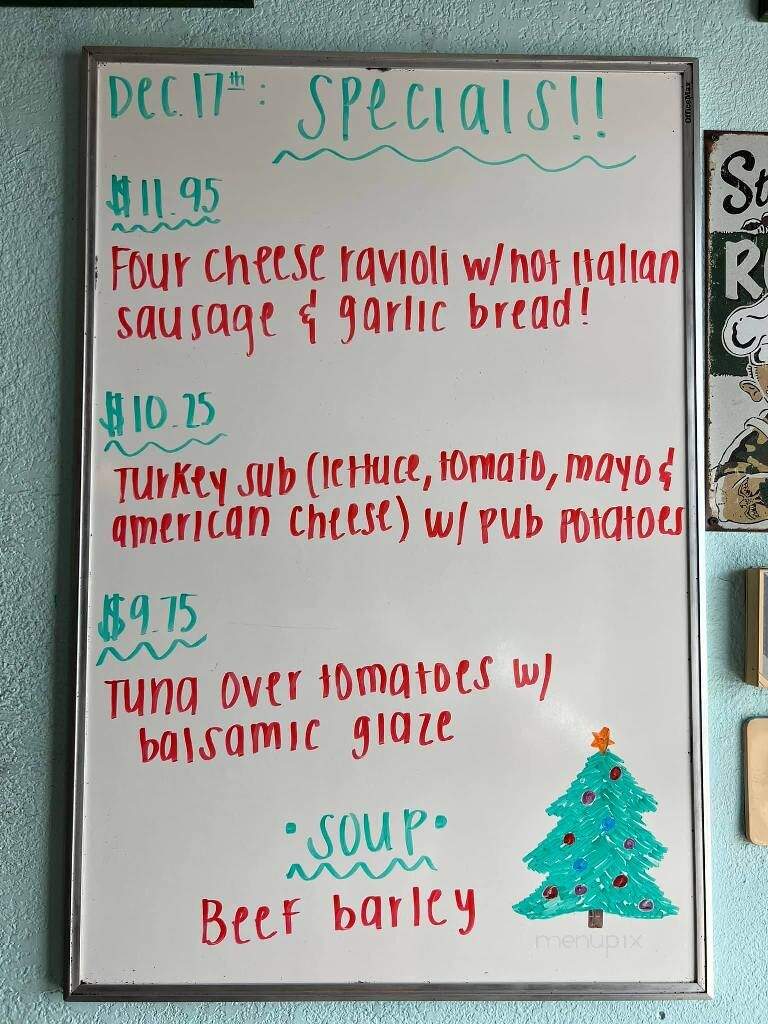 Dec. 17th: Specials!!
OfficeMax
$11.95
Four cheese ravioli w/hot Italian
sausage & garlic bread!
$10.25
Turkey sub (lettuce, tomato, mayo &
american cheese) w/ pub potatoes
$9.75
Tuna over tomatoes w/
balsamic glaze
•soup•
Beef barley
menupix
St
R